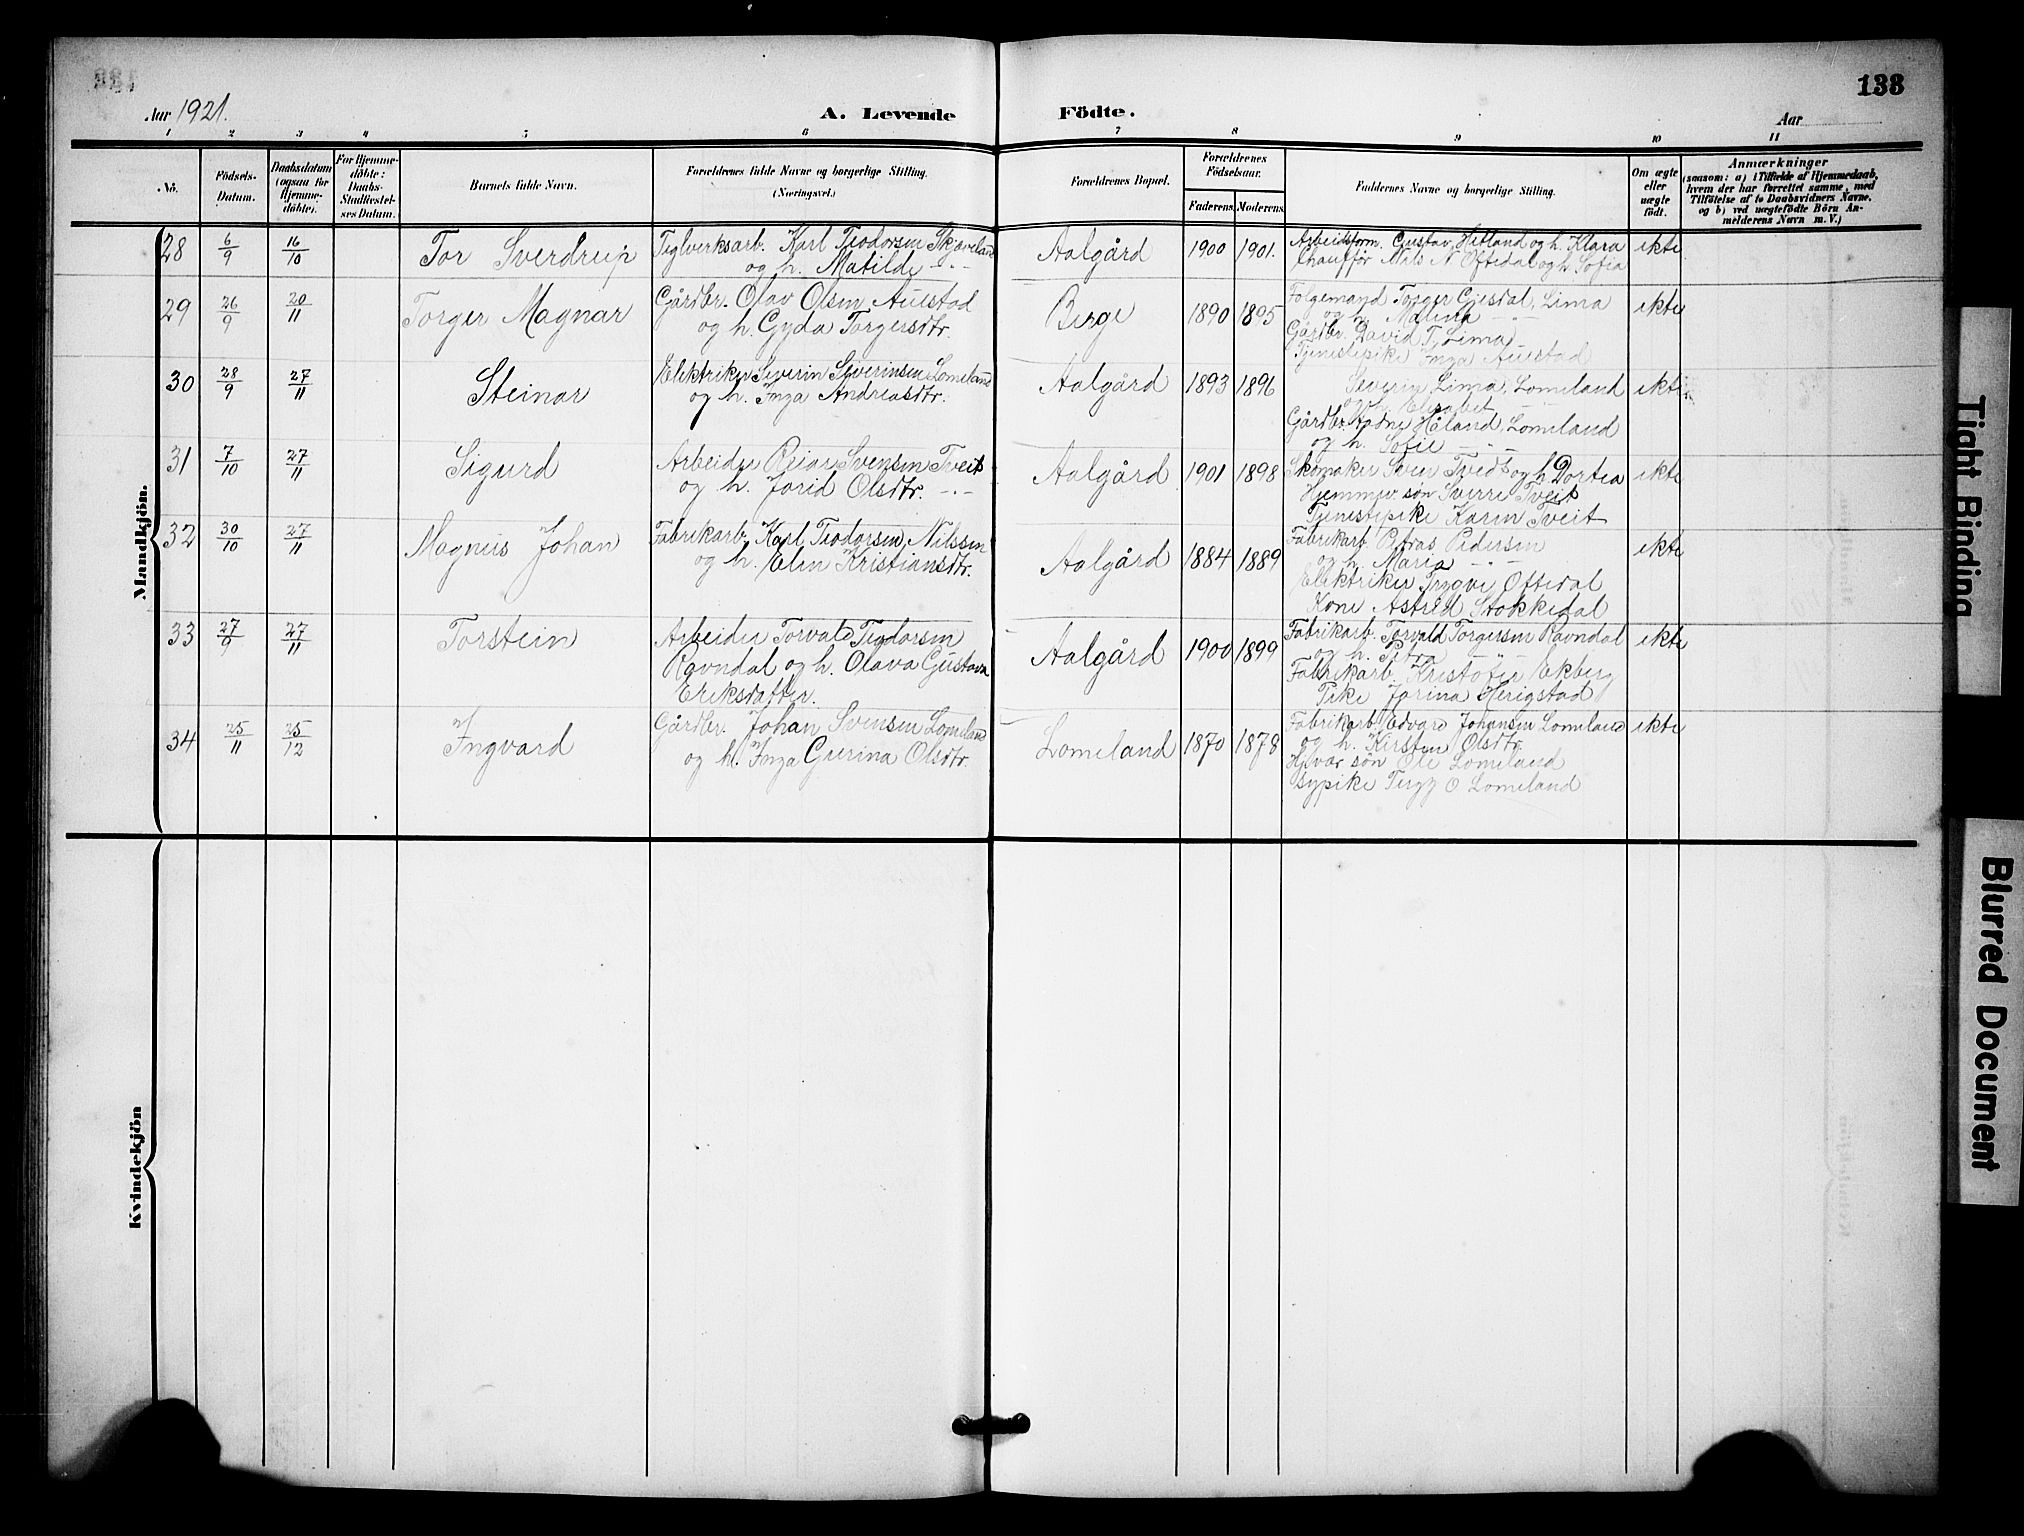 133
Aar 1921.
A. Levende Födte.
Aar
1 2 3 4 5 6 7 8 9 10 11
No.
Födsels-
Datum.
Daabsdatum
(ogsaa for
Hjemme-
döbte).
For Hjemme-
döbte:
Daabs-
Stadfæstel-
ses Datum.
Barnets fulde Navn.
Forældrenes fulde Navne og borgerlige Stilling.
(Næringsvei.)
Forældrenes Bopæl.
Forældrenes
Födselsaar.
Faderens. Moderens.
Faddernes Navne og borgerlige Stilling.
Om ægte
eller
uægte
födt.
Anmærkninger
(saasom: a) i Tilfælde af Hjemmedaab,
hvem der har forrettet samme, med
Tilföielse af to Daabsvidners Navne,
og b) ved uægtefödte Börn An-
melderens Navn m. V.)
Mandkjön.
28 6/9 16/10 Tor Sverdrup
Teglverksarb. Karl Teodorsen Skjæveland
og h. Matilde -"-
Aalgård 1900 1901.
Arbeidsform. Gustav Hetland og h. Klara
Chauffør Nils N Oftedal og h. Sofia
ekte
29 26/9 20/11 Torger Magnar
Gårdbr. Olav Olsen Auestad
og h. Gyda Torgersdtr.
Berge 1890 1895
Følgemand Torger Gjesdal, Lima
og h. Malena -"-
Gårdbr. David T. Lima
Tjenestepike Inga Auestad
ekte
30 28/9 27/11 Steinar
Elektriker Severin Severinsen Lomeland
og h. Inga Andreasdtr.
Aalgård 1893 1896
Severin Lima, Lomeland
og h. Elisabet
Gårdbr.Ådne Håland, Lomeland
og h. Sofie -"-
ekte
31 7/10 27/11 Sigurd
Arbeider Reiar Svensen Tveit
og h. Jorid Olsdtr. -"-
Aalgård 1901 1898
Skomaker Sven Tvedt og h. Dortea
Hjemmev. søn Sverre Tveit
Tjenestepike Karen Tveit
ekte
32 30/10 27/11 Magnus Johan
Fabrikarb. Karl Teodorsen Nilssen
og h. Elen Kristiansdtr.
Aalgård 1884 1889
Fabrikarb. Petras Pedersen
og h. Maria -"-
Elektriker Trygve Oftedal
Kone Astrid Stokkedal
ekte
33 27/9 27/11 Torstein
Arbeider Torvald Teodorsen
Ravndal og h. Olava Gustava
Eriksdatter.
Aalgård 1900 1899
Fabrikarb. Torvald Torgersen Ravndal
og h. Petra -"-
Fabrikarb. Kristofer Ekberg
Pike Jorina Herigstad
ekte
34 25/11 25/12 Ingvard
Gårdbr. Johan Svensen Lomeland
og h. Inga Gurina Olsdtr.
Lomeland 1870 1878
Fabrikarb. Edvard Johansen Lomeland
og h. Kirsten Olsdtr.
Hjvær søn Ole Lomeland
Sypike O Lomeland
ekte
Kvindekjön
Tight Binding
Blurred Document